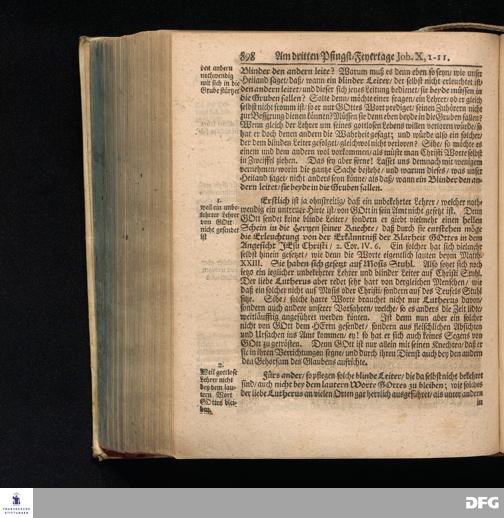 898 Am dritten Pfingst-Feyertage Joh. X, 1-11.
den andern
nothwendig
mit sich in die
Grube stürtzet
Blinder den andern leite? Warum muß es denn eben so seyn, wie unser
Heiland saget/ daß/ wann ein blinder Leiter/ der selbst nicht erleuchtet ist/
den andern leitet/ und dieser sich jenes Leitung bedienet/ sie beyde müssen in
die Gruben fallen? Solte denn/ möchte einer sagen/ ein Lehrer/ ob er gleich
selbst nicht fromm ist/ so er nur GOttes Wort prediget/ seinen Zuhörern nicht
zur Besserung dienen können? Müssen sie denn eben beyde in die Gruben fallen?
Wenn gleich der Lehrer um seines gottlosen Lebens willen verloren würde/ so
hat er doch denen andern die Wahrheit gesagt; und würde also ein solcher/
der dem blinden Leiter gefolget/ gleichwol nicht verloren? Sihe? so möchte es
einem und dem andern wol vorkommen/ als müste man Christi Worte selbst
in Zweiffel ziehen. Das sey aber ferne! Lasset uns demnach mit wenigem
vernehmen/ worin die gantze Sache bestehe/ und warum dieses/ was unser
Heiland saget/ nicht anders seyn könne/ als daß/ wann ein Blinder den an-
dern leitet/ sie beyde in die Gruben fallen.
1.
weil ein unbe-
kehrter Lehrer
von GOtt
nicht gesendet
ist
Erstlich ist ja ohnstreitig/ daß ein unbekehrter Lehrer/ welcher noth-
wendig ein untreuer Hirte ist/ von GOtt in sein Amt nicht gesetzt ist. Denn
GOtt sendet keine blinde Leiter/ sondern er giebt vielmehr einen hellen
Schein in die Hertzen seiner Knechte/ daß durch sie entstehen möge
die Erleuchtung von der Erkänntniß der Klarheit GOttes in dem
Angesicht JEsu Christi/ 2. Cor. IV. 6. Ein solcher hat sich vielmehr
selbst hinein gesetzet/ wie denn die Worte eigentlich lauten beym Matth.
XXIII. Sie haben sich gesetzt auf Mosis Stuhl. Also setzet sich noch
jetzo ein jeglicher unbekehrter Lehrer und blinder Leiter auf Christi Stuhl.
Der liebe Lutherus aber redet sehr hart von dergleichen Menschen/ wie
daß ein solcher nicht auf Mosis oder Christi/ sondern auf des Teufels Stuhl
sitze. Sihe? solche harte Worte brauchet nicht nur Lutherus davon/
sondern auch andere unserer Vorfahren/ welche/ so es anders die Zeit lidte/
weitläufftig angeführet werden könten. Ist denn nun aber ein solcher
nicht von GOtt dem HErrn gesendet/ sondern aus fleischlichen Absichten
und Ursachen ins Amt kommen/ ey! so hat er sich auch keines Segens von
GOtt zu getrösten. Denn GOtt ist nur allein mit seinen Knechten/ daß er
sie in ihren Verrichtungen segne/ und durch ihren Dienst auch bey den andern
den Gehorsam des Glaubens aufrichte.
2.
Weil gottlose
Lehrer nicht
bey dem lau-
tern Wort
GOttes blei-
ben,
Fürs ander/ so pflegen solche blinde Leiter/ die da selbst nicht bekehret
sind/ auch nicht bey dem lautern Worte GOttes zu bleiben; wie solches
der liebe Lutherus an vielen Orten gar herrlich ausgeführet/ als unter andern
in
FRANCKESCHE
STIFTUNGEN
DFG